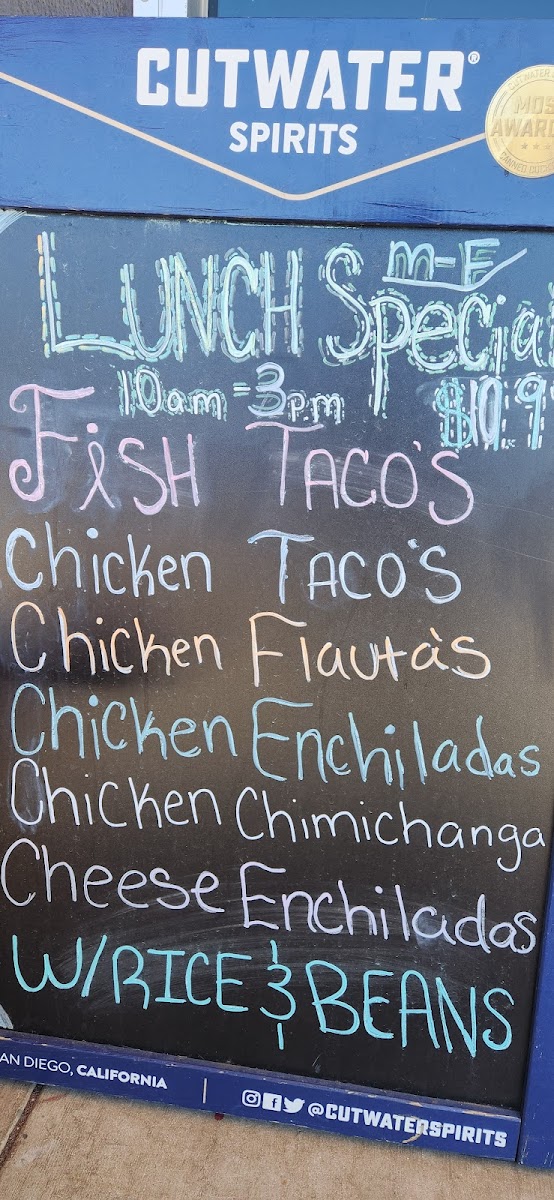 CUTWATER®
SPIRITS
CUTWATER
MOS
AWARD
CANNED
M-F
LUNCH Special
10am - 3pm
$10.9
FiSH TACO'S
Chicken TACO'S
Chicken Flauta's
Chicken Enchiladas
Chicken Chimichanga
Cheese Enchiladas
W/RICE & BEANS
AN DIEGO, CALIFORNIA | @CUTWATERSPIRITS